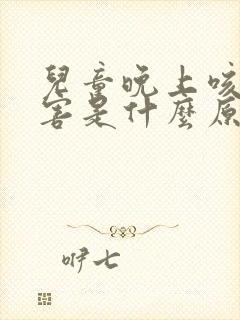 兒童晚上咳
害是什麼原
咿七